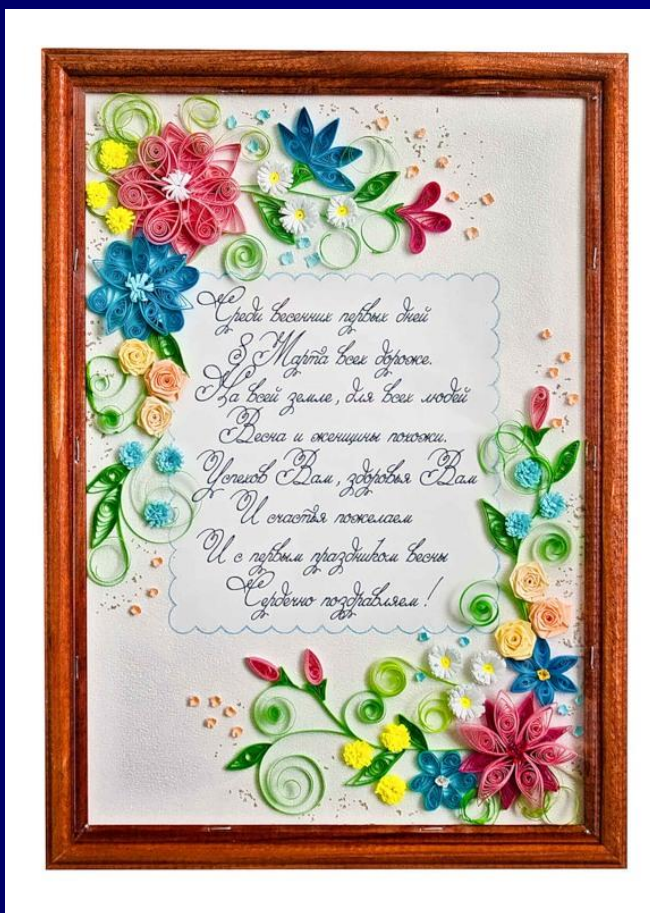 Среди весенних первых дней
8 Марта всех дороже.
На всей земле, для всех людей
Весна и женщины похожи.
Успехов Вам, здоровья Вам
И счастья пожелаем
И с первым праздником весны
Сердечно поздравляем!